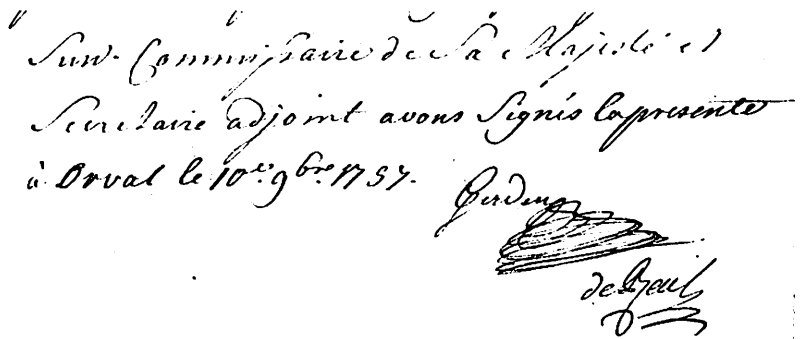 Commissaire de Sa Majesté et
Secretaire adjoint avons Signés la presente
à Orval le 10e. 9bre. 1757.